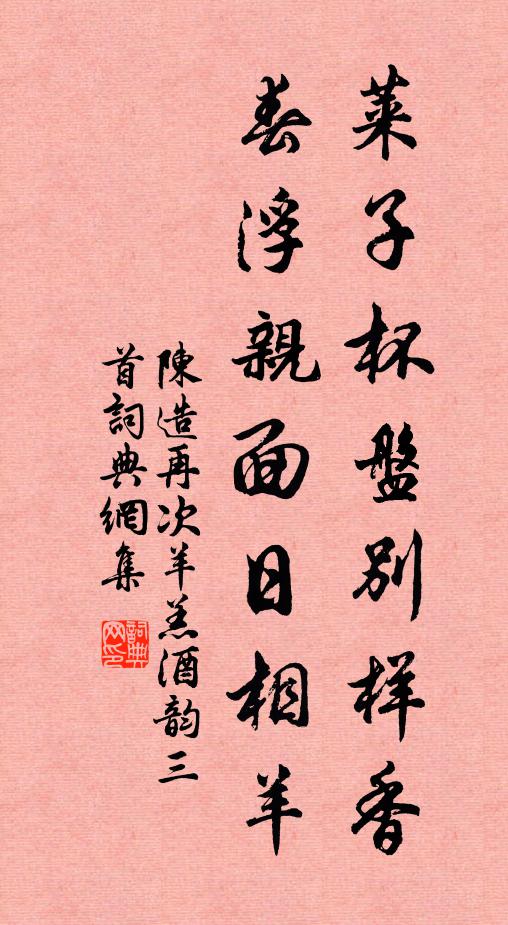 萊子杯盤別样香
春浮親面日相羊
陳造再次羊羔酒韵三
首詞典網集
詞典网印